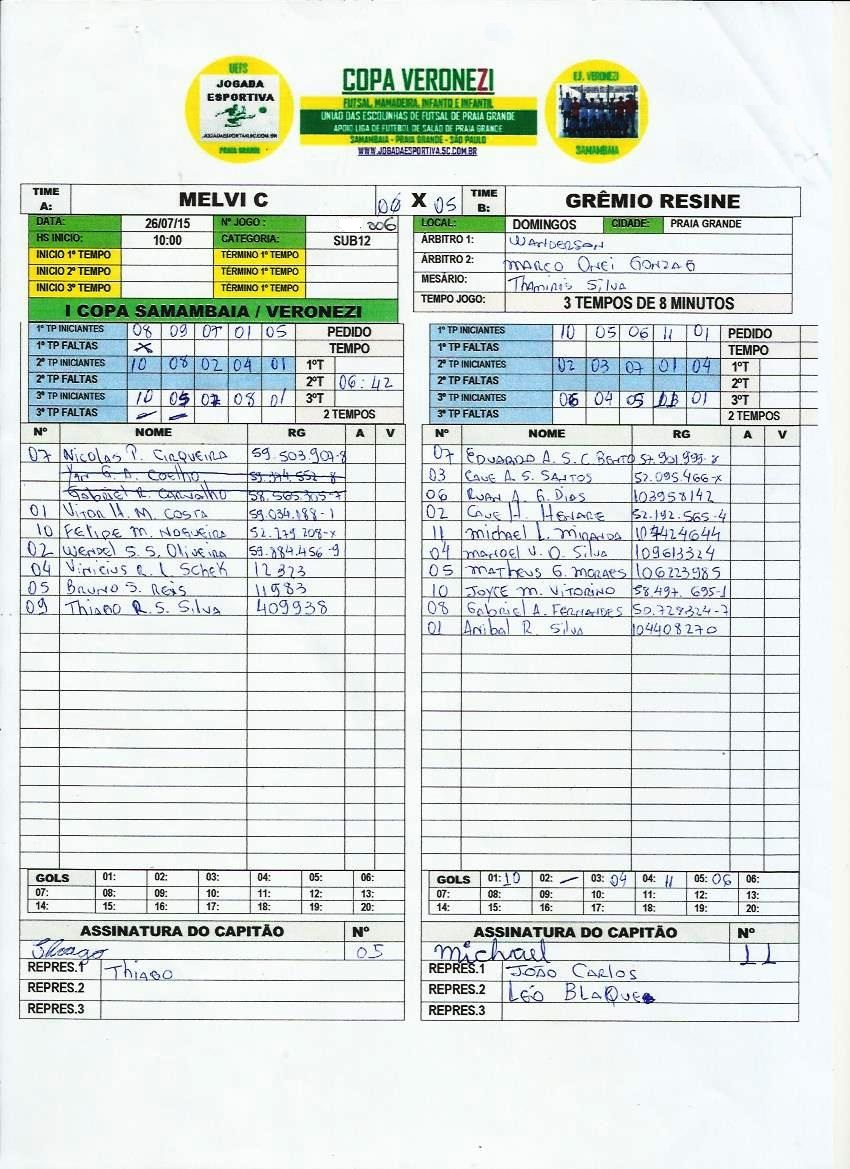 UEFS
JOGADA
ESPORTIVA
JOGADAESPORTIVA.SC.COM.BR
PRAIA GRANDE
COPA VERONEZI
FUTSAL, MAMADEIRA, INFANTO E INFANTIL
UNIÃO DAS ESCOLINHAS DE FUTSAL DE PRAIA GRANDE
APOIO LIGA DE FUTEBOL DE SALÃO DE PRAIA GRANDE
SAMAMBAIA - PRAIA GRANDE - SÃO PAULO
WWW.JOGADAESPORTIVA.SC.COM.BR
E.F. VERONEZI
SAMAMBAIA
TIME A: MELVI C 00 X 05 TIME B: GRÊMIO RESINE
DATA: 26/07/15 Nº JOGO : 006
HS INICIO: 10:00 CATEGORIA: SUB12
INICIO 1º TEMPO TÉRMINO 1º TEMPO
INICIO 2º TEMPO TÉRMINO 1º TEMPO
INICIO 3º TEMPO TÉRMINO 1º TEMPO
LOCAL: DOMINGOS CIDADE: PRAIA GRANDE
ÁRBITRO 1: WANDERSON
ÁRBITRO 2: MARCO ONEI GONZAG
MESÁRIO: Thamiris Silva
TEMPO JOGO: 3 TEMPOS DE 8 MINUTOS
I COPA SAMAMBAIA / VERONEZI
1º TP INICIANTES 08 09 07 01 05 PEDIDO
1º TP FALTAS X TEMPO
2º TP INICIANTES 10 08 02 04 01 1ºT
2º TP FALTAS 2ºT 06:42
3º TP INICIANTES 10 05 07 08 01 3ºT
3º TP FALTAS 2 TEMPOS
1º TP INICIANTES 10 05 06 11 01 PEDIDO
1º TP FALTAS TEMPO
2º TP INICIANTES 02 03 07 01 04 1ºT
2º TP FALTAS 2ºT
3º TP INICIANTES 06 04 05 01 3ºT
3º TP FALTAS 2 TEMPOS
Nº NOME RG A V
07 Nicolas P. Cirqueira 59.503.907-8
Yan G. A. Coelho 59.394.552-8
Gabriel R. Carvalho 58.565.305-7
01 Vitor H. M. Costa 59.034.188-1
10 Felipe M. Nogueira 52.279.208-x
02 Wendel S. S. Oliveira 59.884.456-9
04 Vinicius R. L Schek 12323
05 Bruno S. Reis 11983
09 Thiago R. S. Silva 409938
Nº NOME RG A V
07 Eduardo A. S. C. Bento 57.901.995-x
03 Caue A. S. Santos 52.095.466-x
06 Ruan A. G. Dias 103958142
02 Caue H. Henare 52.192.565-4
11 michael L. Miranda 107424644
04 manoel V. O. Silva 109613324
05 Matheus G. Moraes 106223985
10 Joyce M. Vitorino 58.497.695-1
08 Gabriel A. Fernandes 50.728324-7
01 Anibal R. Silva 104408270
GOLS 01: 02: 03: 04: 05: 06:
07: 08: 09: 10: 11: 12: 13:
14: 15: 16: 17: 18: 19: 20:
GOLS 01: 10 02: – 03: 04 04: 11 05: 06 06:
07: 08: 09: 10: 11: 12: 13:
14: 15: 16: 17: 18: 19: 20:
ASSINATURA DO CAPITÃO Nº
Thiago 05
REPRES.1 Thiago
REPRES.2
REPRES.3
ASSINATURA DO CAPITÃO Nº
michael 11
REPRES.1 João Carlos
REPRES.2 Léo Blaque
REPRES.3